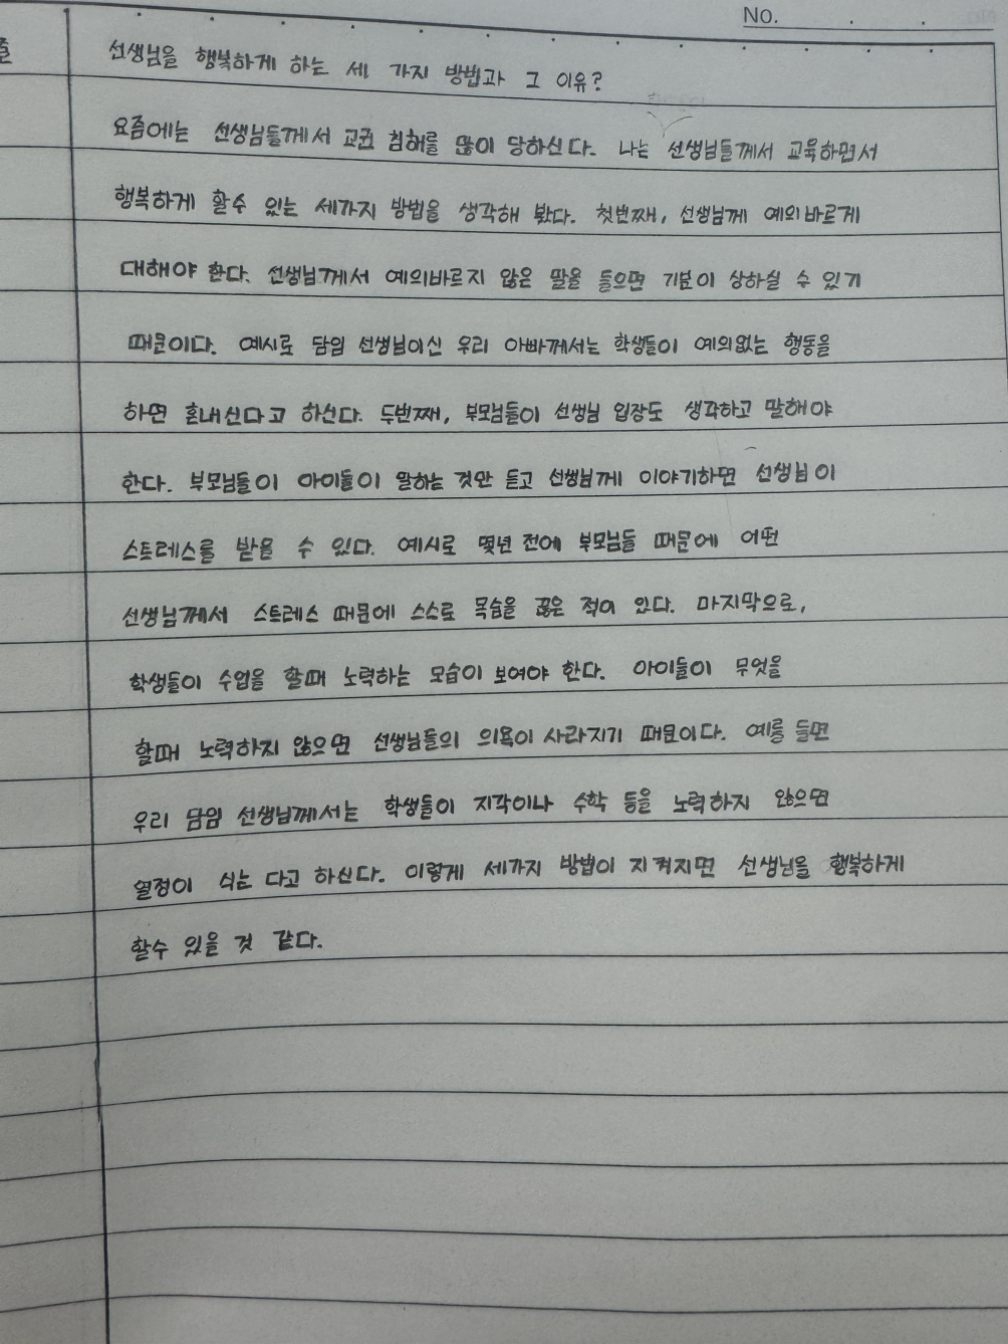 No. . . .
줄
선생님을 행복하게 하는 세 가지 방법과 그 이유?
요즘에는 선생님들께서 교권 침해를 많이 당하신다. 나는 선생님들께서 교육하면서
행복하게 할수 있는 세가지 방법을 생각해 봤다. 첫번째, 선생님께 예의바르게
대해야 한다. 선생님께서 예의바르지 않은 말을 들으면 기분이 상하실 수 있기
때문이다. 예시로 담임 선생님이신 우리 아빠께서는 학생들이 예의없는 행동을
하면 혼내신다고 하신다. 두번째, 부모님들이 선생님 입장도 생각하고 말해야
한다. 부모님들이 아이들이 말하는 것만 듣고 선생님께 이야기하면 선생님이
스트레스를 받을 수 있다. 예시로 몇년 전에 부모님들 때문에 어떤
선생님께서 스트레스 때문에 스스로 목숨을 끊은 적이 있다. 마지막으로,
학생들이 수업을 할때 노력하는 모습이 보여야 한다. 아이들이 무엇을
할때 노력하지 않으면 선생님들의 의욕이 사라지기 때문이다. 예를 들면
우리 담임 선생님께서는 학생들이 지각이나 수학 등을 노력하지 않으면
열정이 식는 다고 하신다. 이렇게 세가지 방법이 지켜지면 선생님을 행복하게
할수 있을 것 같다.